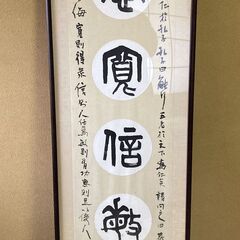 仁於孔子孔子曰能行五者於天下為仁矣請問之曰恭
寬信敏
侮寬則得眾信則人任焉敏則有功惠則足以使人